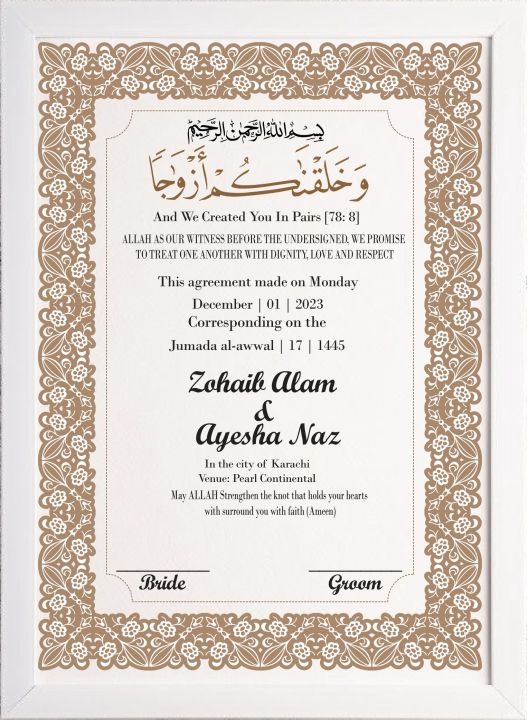 بِسْمِ اللهِ الرَّحْمٰنِ الرَّحِيْمِ
وَخَلَقْنَٰكُمْ أَزْوَٰجًا
And We Created You In Pairs [78: 8]
ALLAH AS OUR WITNESS BEFORE THE UNDERSIGNED, WE PROMISE
TO TREAT ONE ANOTHER WITH DIGNITY, LOVE AND RESPECT
This agreement made on Monday
December | 01 | 2023
Corresponding on the
Jumada al-awwal | 17 | 1445
Zohaib Alam
&
Ayesha Naz
In the city of Karachi
Venue: Pearl Continental
May ALLAH Strengthen the knot that holds your hearts
with surround you with faith (Ameen)
Bride Groom